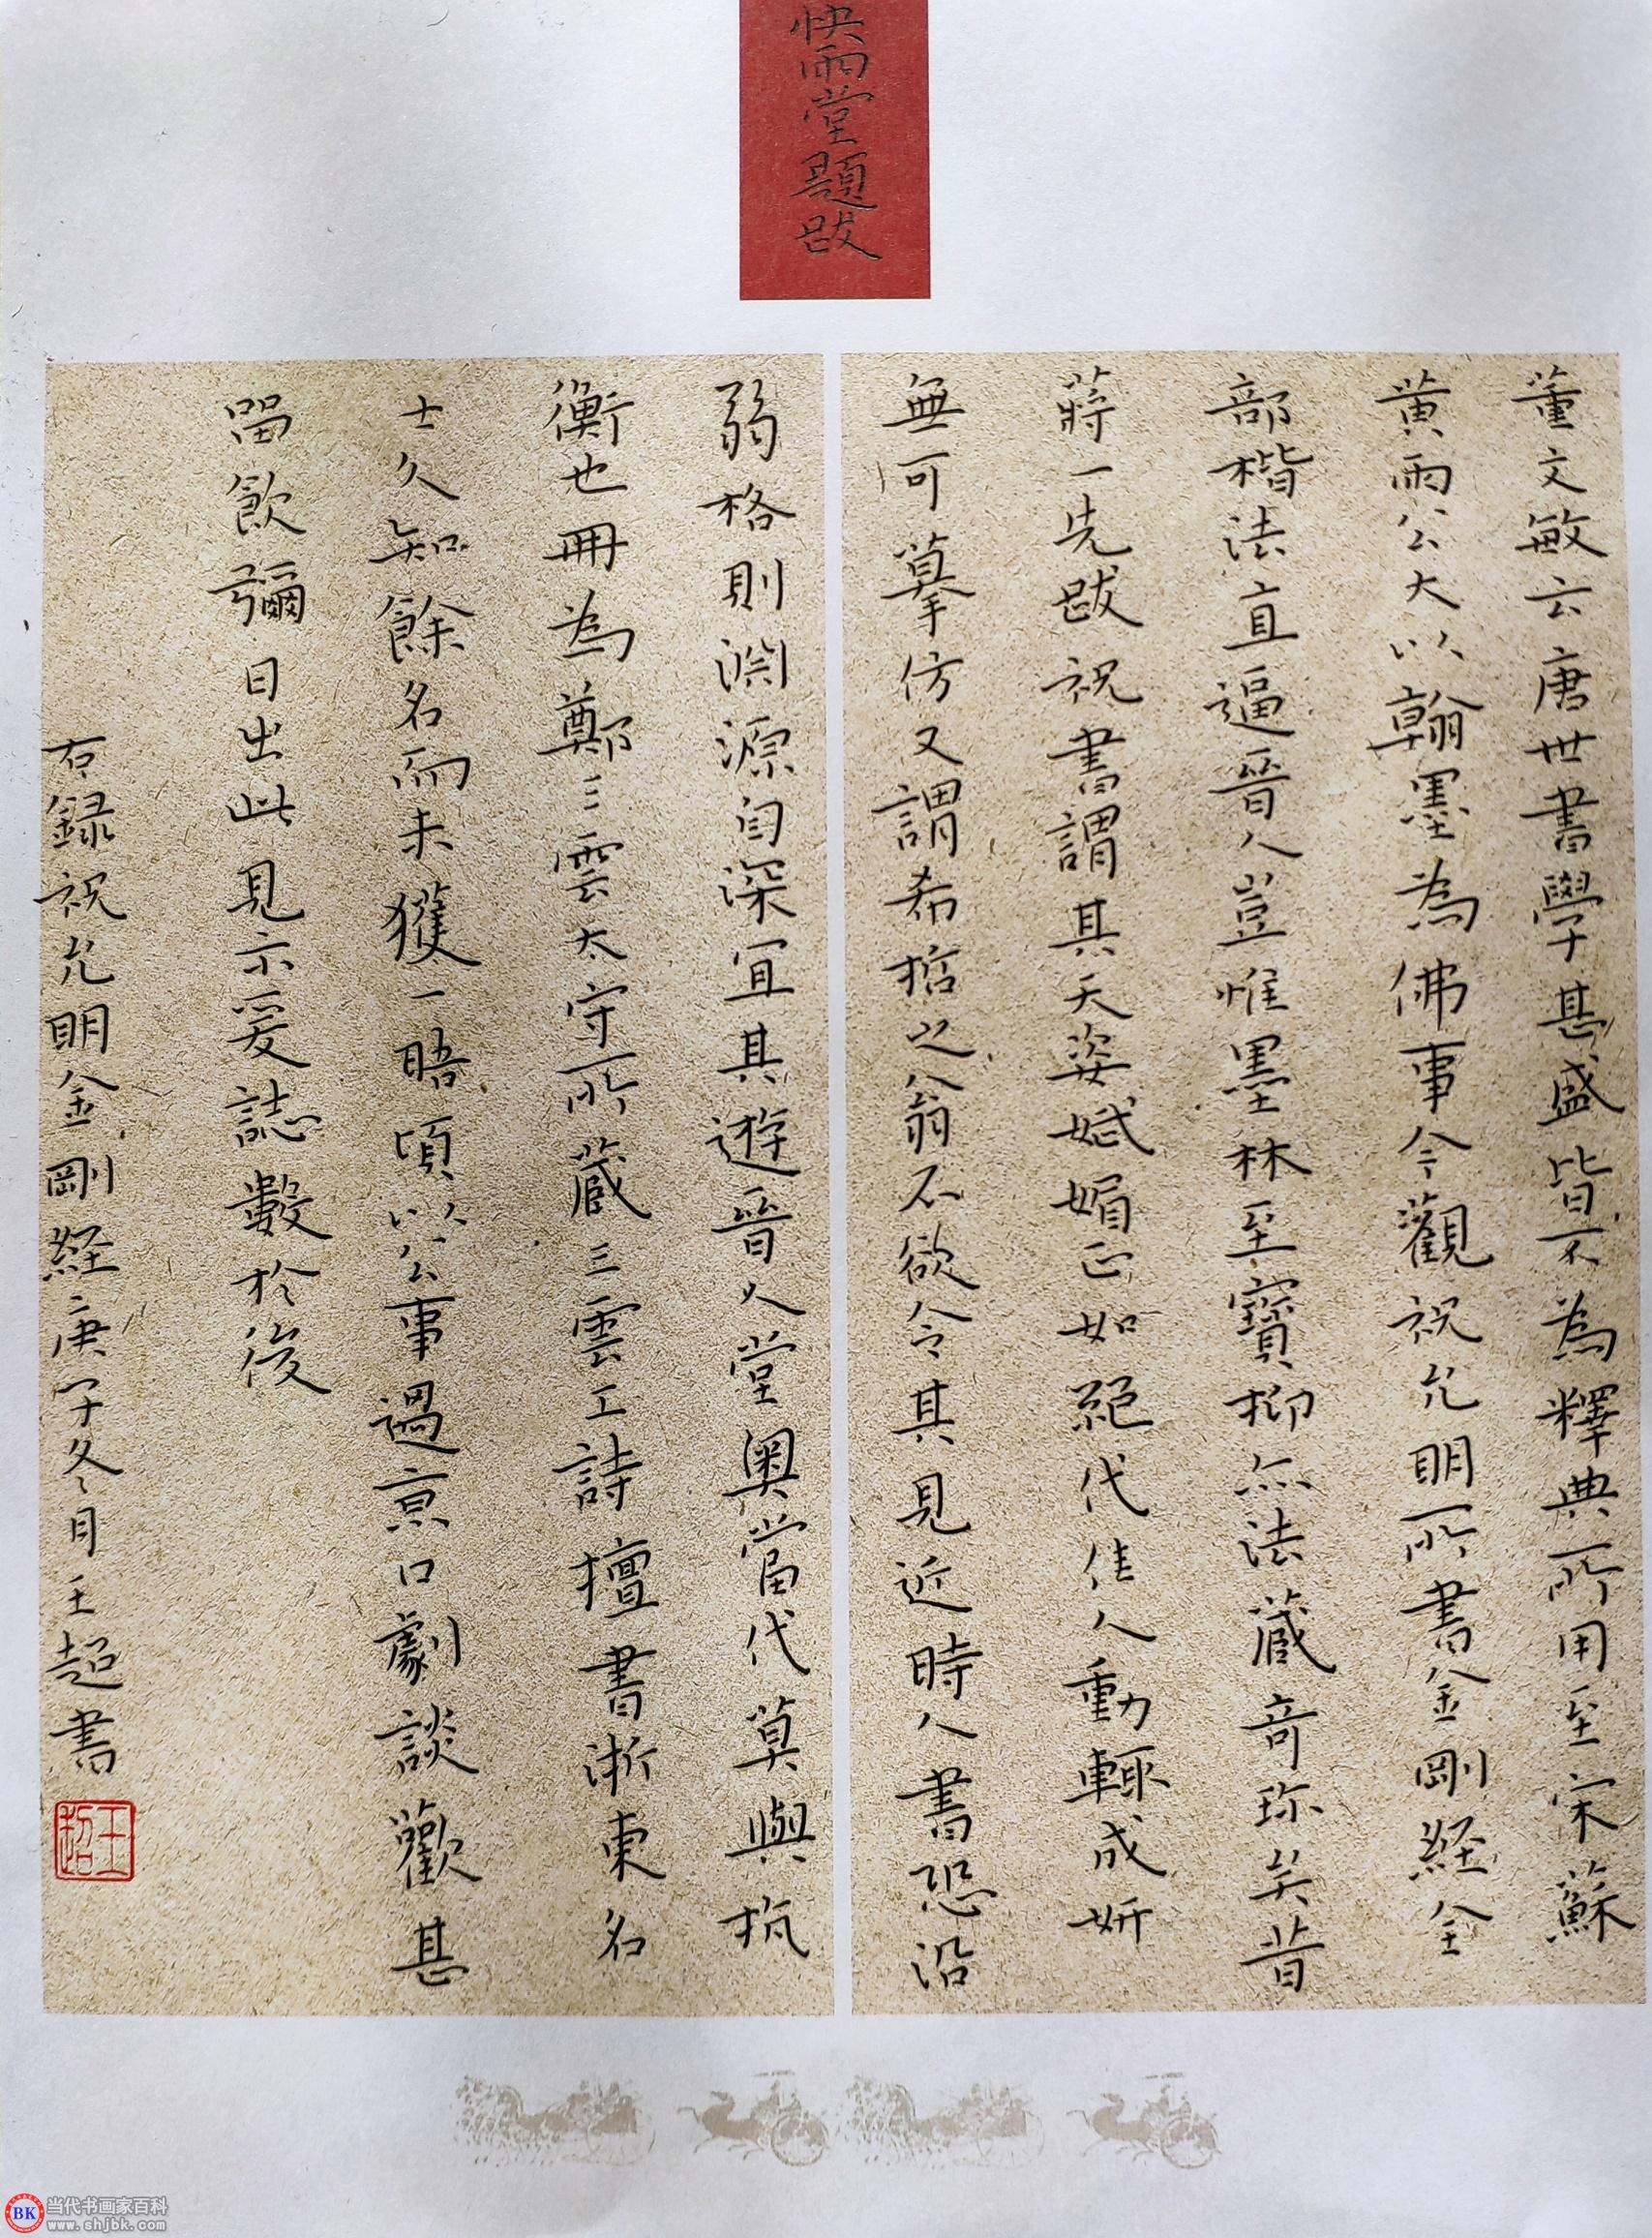 快雨堂題跋
董文敏云唐世書學甚盛皆不為釋典所用至宋蘇
黃兩公大以翰墨為佛事今觀祝允明所書金剛經全
部楷法直逼晉人豈惟墨林至寶抑亦法藏奇珎矣昔
蔣一先跋祝書謂其天姿嫵媚正如絕代佳人動輒成妍
無可摹仿又謂希哲之翁不欲令其見近時人書恐沿
弱格則淵源自深宜其遊晉人堂奧當代莫與抗
衡也冊為鄭三雲太守所藏三雲工詩擅書浙東名
士久知餘名而未獲一晤頃以公事過京口劇談歡甚
留飲彌日出此見示爰誌數於後
右録祝允明金剛經庚子冬月王超書
王超
BK 当代书画家百科
www.shjbk.com